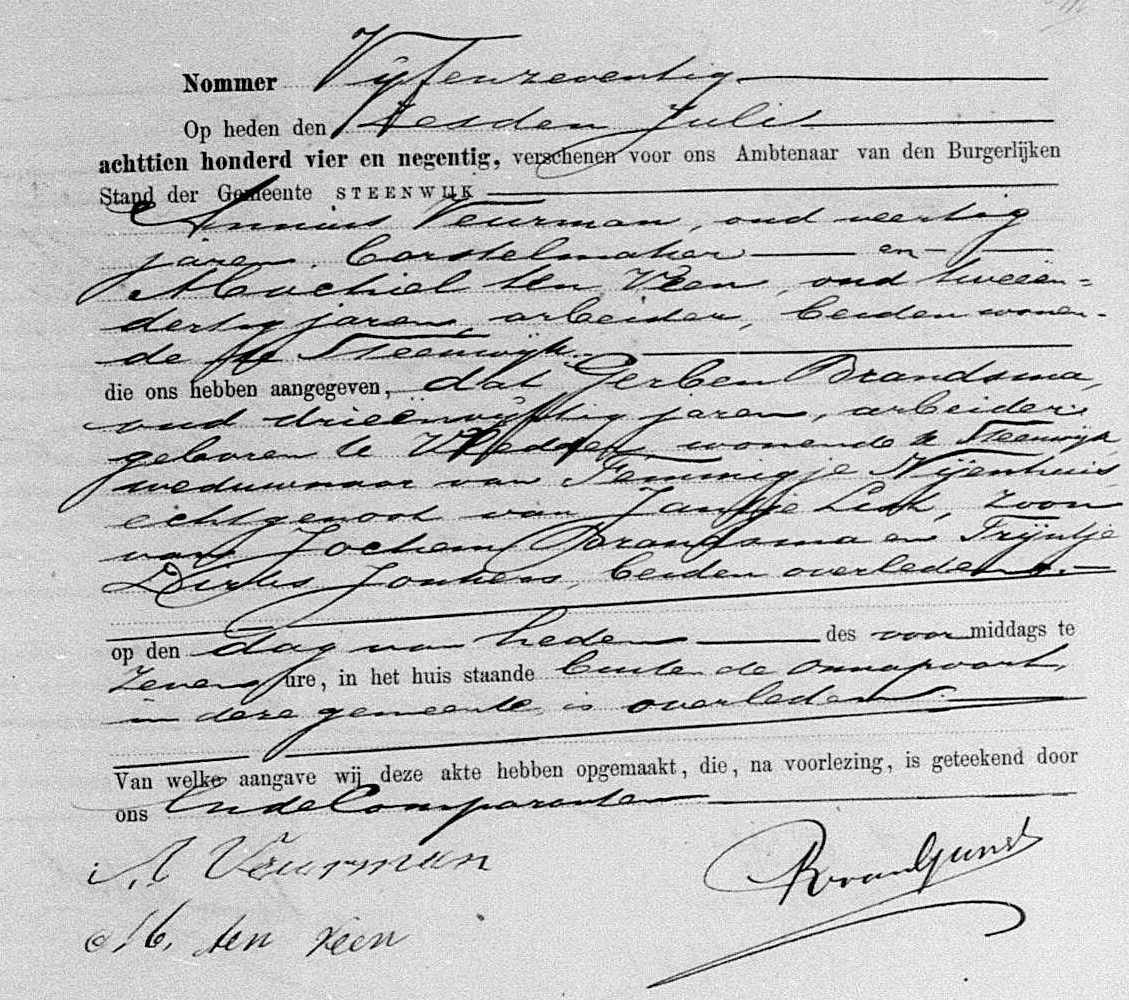 Nommer Vijfenzeventig
Op heden den zesden Julij
achttien honderd vier en negentig, verschenen voor ons Ambtenaar van den Burgerlijken
Stand der Gemeente STEENWIJK
Annius Veurman, oud veertig
jaren, borstelmaker en
Machiel ten Veen, oud tweeën=
dertig jaren, arbeider, beiden wonen-
de te Steenwijk
die ons hebben aangegeven, dat Gerben Brandsma,
oud drieënvijftig jaren, arbeider,
geboren te Vledder, wonende te Steenwijk,
weduwnaar van Femmigje Nijenhuis,
echtgenoot van Jantje Lok, zoon
van Jochem Brandsma en Trijntje
Dirks Jonkers, beiden overleden.
op den dag van heden des voormiddags te
zeven ure, in het huis staande buiten de Onnapoort,
in deze gemeente, is overleden.
Van welke aangave wij deze akte hebben opgemaakt, die, na voorlezing, is geteekend door
ons en de Comparanten
A Veurman
M. ten Veen
van Gunst